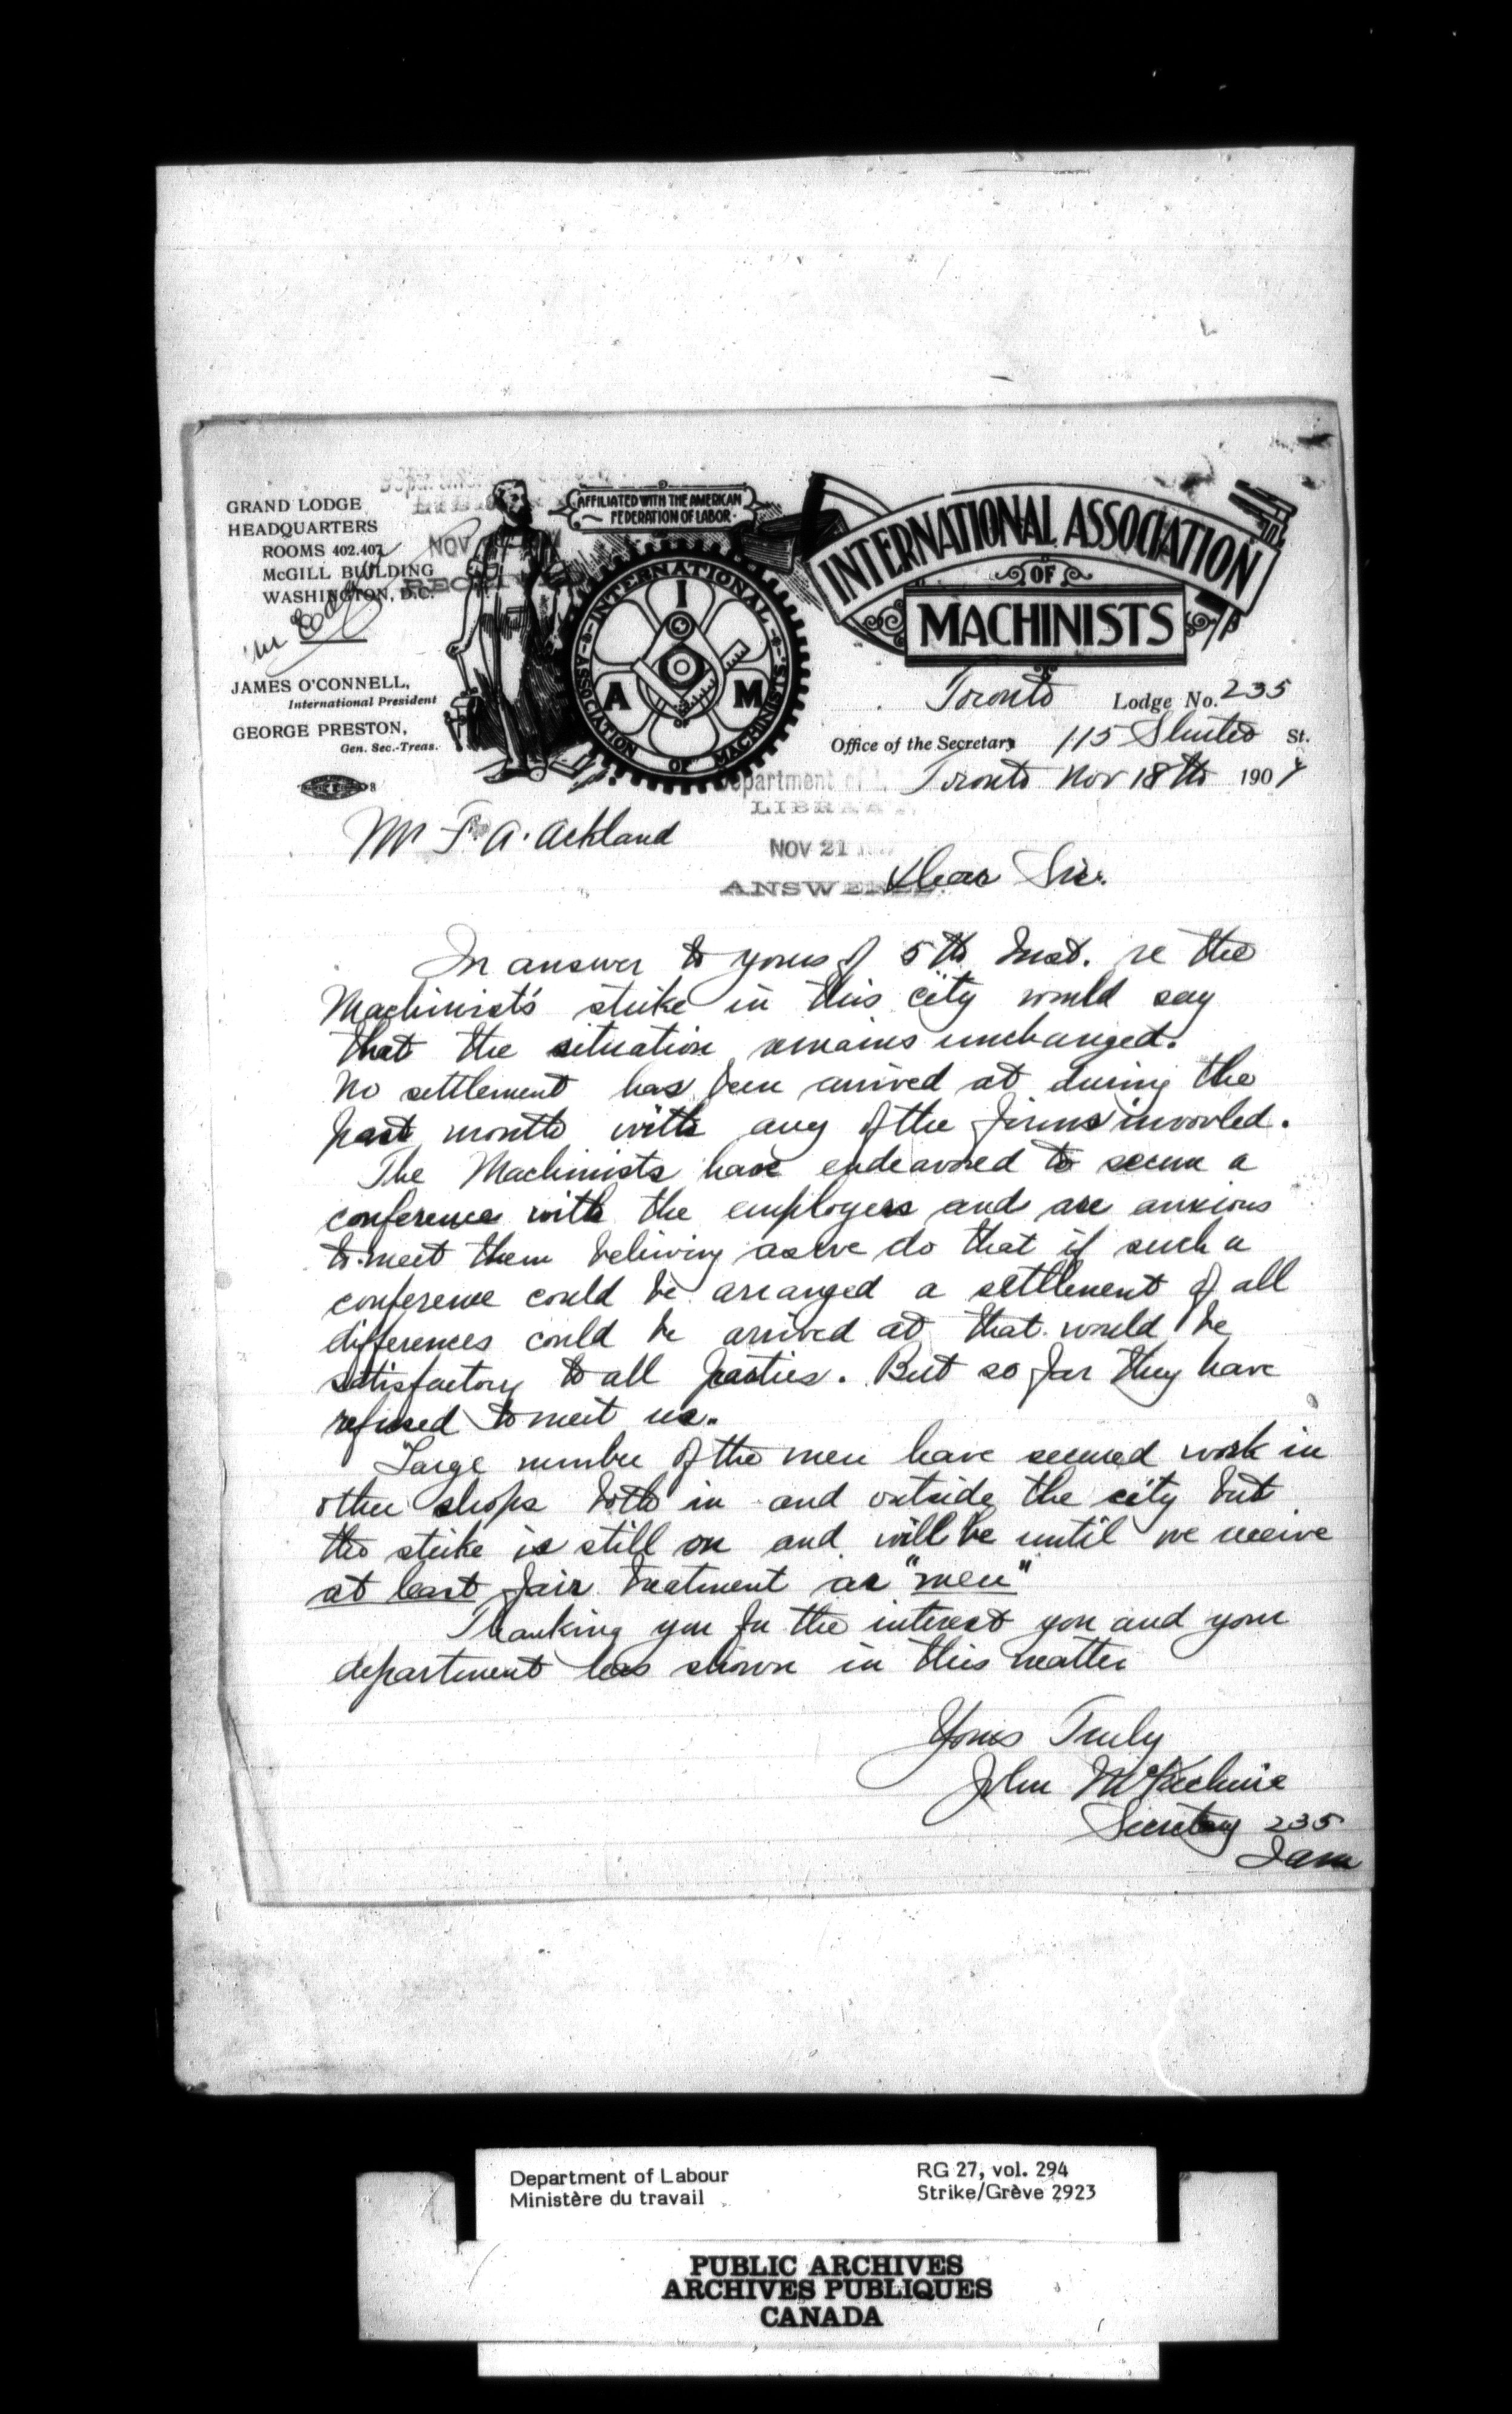 GRAND LODGE
HEADQUARTERS
ROOMS 402.407
McGILL BUILDING
WASHINGTON, D.C.
JAMES O'CONNELL,
International President
GEORGE PRESTON,
Gen. Sec.-Treas.
NOV
AFFILIATED WITH THE AMERICAN
FEDERATION OF LABOR.
INTERNATIONAL ASSOCIATION OF MACHINISTS
I A M
OF
INTERNATIONAL ASSOCIATION
OF
MACHINISTS
Toronto Lodge No. 235
Office of the Secretary 115 St.
Toronto Nov 18th 1907
Department of L
LIBRA
NOV 21
ANSWE
Mr F. A. Ackland
Dear Sir.
In answer to yours of 5th Inst. re the
Machinist's strike in this city would say
that the situation remains unchanged.
No settlement has been arrived at during the
past month with any of the firms invovled.
The Machinists have endeavored to secure a
conference with the employers and are anxious
to meet them beliving as we do that if such a
conference could be arranged a settlement of all
differences could be arrived at that would be
satisfactory to all parties. But so far they have
refused to meet us.
Large number of the men have secured work in
other shops both in and outside the city but
the strike is still on and will be until we receive
at least fair treatment as "men"
Thanking you for the interest you and your
department has shown in this matter
Yours Truly
John McKechnie
Secretary 235
I am
Department of Labour
Ministère du travail
RG 27, vol. 294
Strike/Grève 2923
PUBLIC ARCHIVES
ARCHIVES PUBLIQUES
CANADA